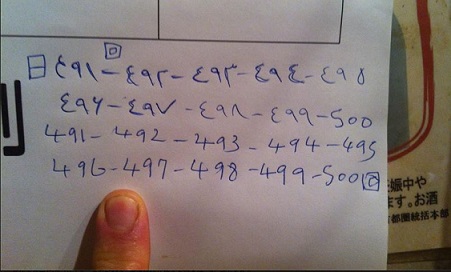 ٤٩١ - ٤٩٢ - ٤٩٣ - ٤٩٤ - ٤٩٥
٤٩٦ - ٤٩٧ - ٤٩٨ - ٤٩٩ - 500
491 - 492 - 493 - 494 - 495
496 - 497 - 498 - 499 - 500
娠中や
す。お酒
都圏統括本部